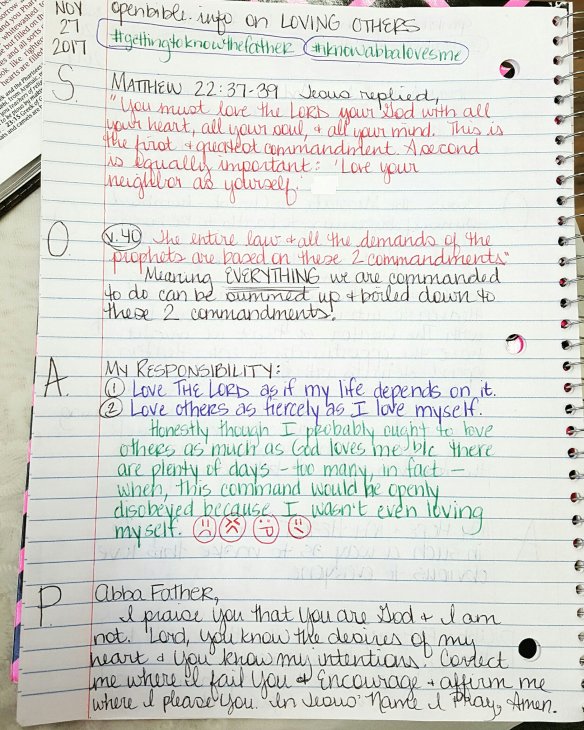 NOV
27
2017
openbible.info on LOVING OTHERS
#gettingtoknowthefather #iknowabbalovesme
S. MATTHEW 22:37-39 Jesus replied,
"You must love the LORD your God with all
your heart, all your soul, + all your mind. This is
the first + greatest commandment. A second
is equally important: 'Love your
neighbor as yourself.'
O. v.40 The entire law + all the demands of the
prophets are based on these 2 commandments."
Meaning EVERYTHING we are commanded
to do can be summed up + boiled down to
these 2 commandments!
A. MY RESPONSIBILITY:
① Love THE LORD as if my life depends on it.
② Love others as fiercely as I love myself.
Honestly though I probably ought to love
others as much as God loves me b/c there
are plenty of days - too many, in fact -
when, this command would be openly
disobeyed because I wasn't even loving
myself.
P. Abba Father,
I praise You that You are God + I am
not. Lord, you know the desires of my
heart + You know my intentions. Correct
me where I fail You + Encourage + affirm me
where I please You. In Jesus' Name I Pray, Amen.